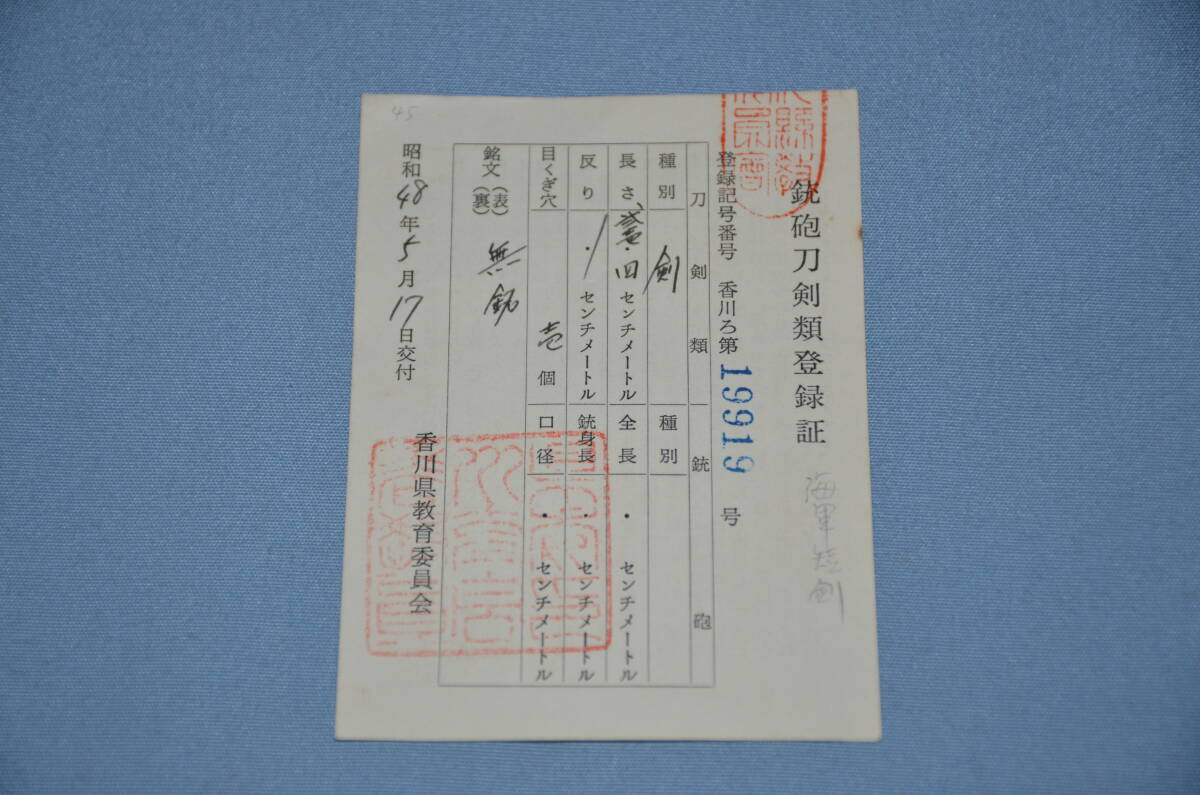 銃砲刀剣類登録証
海軍短剣
登録記号番号 香川ろ第19919号
刀剣類 銃砲
種別 剣 種別
長さ・四センチメートル 全長・センチメートル
反り・センチメートル 銃身長・センチメートル
目くぎ穴 壱個 口径・センチメートル
銘文(表)(裏) 無銘
昭和48年5月17日交付
香川県教育委員会
45